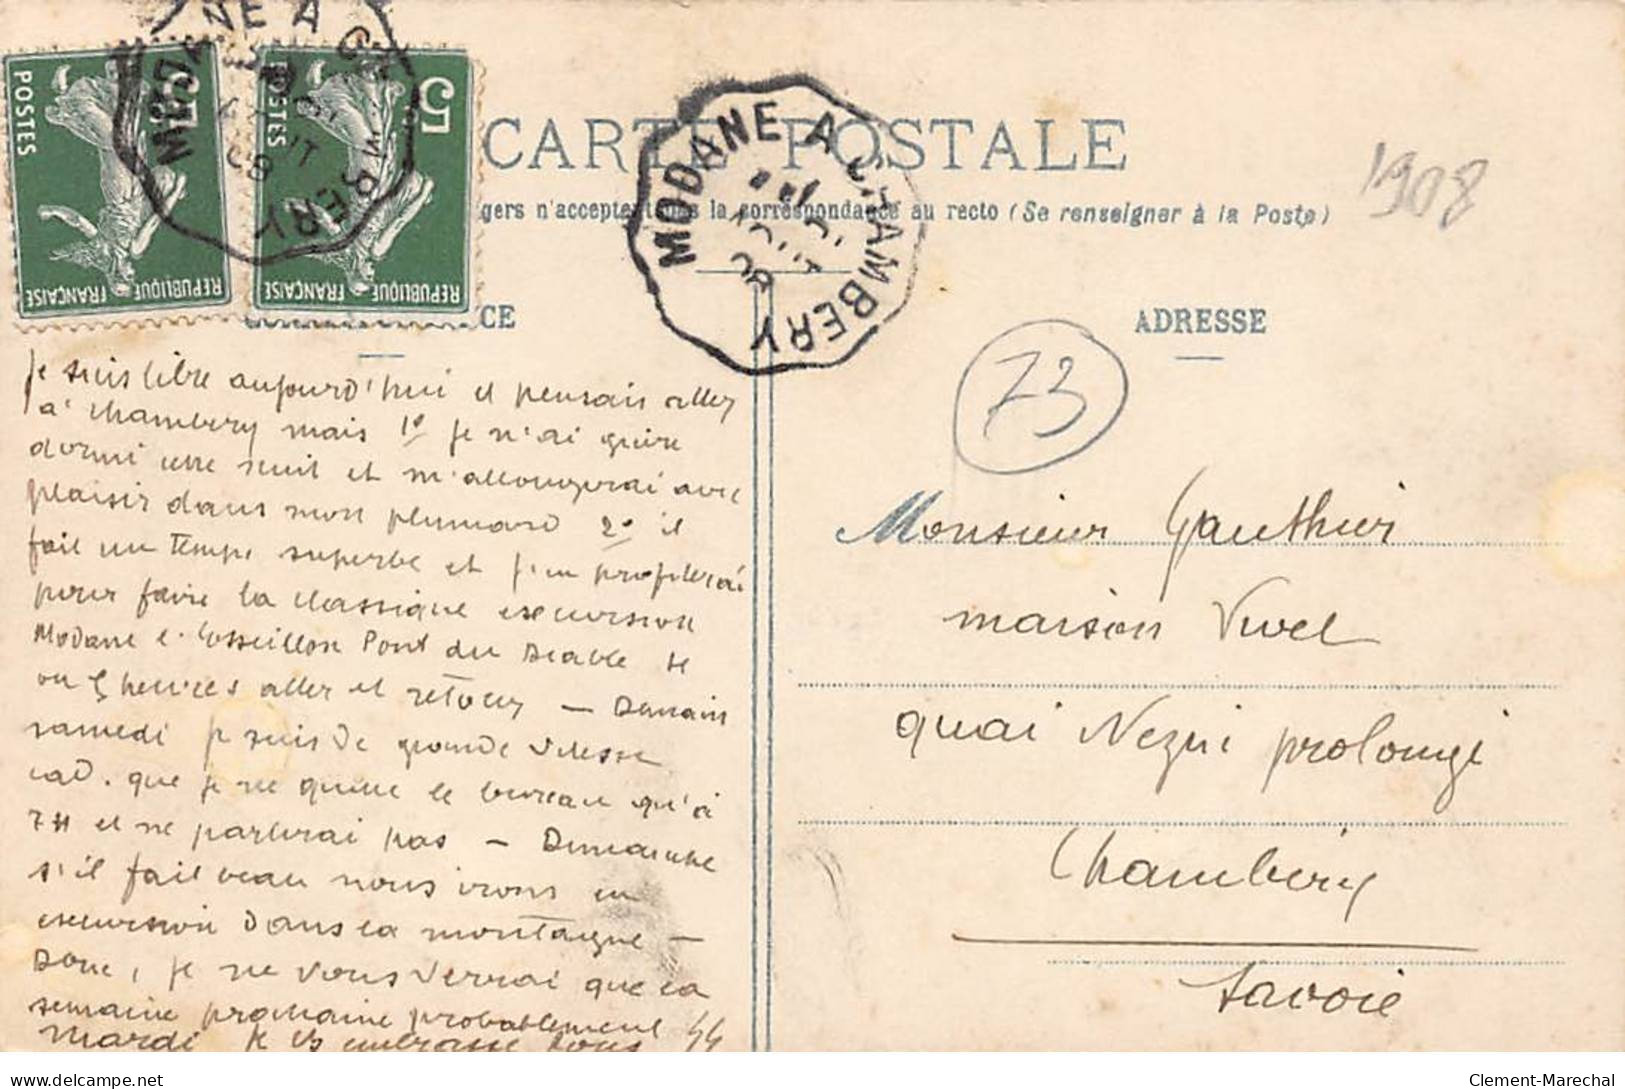 MODANE A CHAMBERY
5 POSTES REPUBLIQUE FRANÇAISE
5 POSTES REPUBLIQUE FRANÇAISE
CARTE POSTALE
MODANE A CHAMBERY
1908
gers n'acceptent pas la correspondance au recto (Se renseigner à la Poste)
CE
ADRESSE
73
Je suis libre aujourd'hui et pensais aller
à Chambery mais 1º je n'ai guère
dormi cette nuit et m'allongerai avec
plaisir dans mon plumard 2º il
fait un temps superbe et j'en profiterai
pour faire la classique excursion
Modane l'Esseillon Pont du Diable 4
ou 5 heures aller et retour — Demain
samedi je suis de grande vitesse
cad. que je ne quitte le bureau qu'à
7H et ne partirai pas — Dimanche
s'il fait beau nous irons en
excursion dans la montagne —
Donc, je ne vous verrai que la
semaine prochaine probablement
mardi Je vs embrasse tous
Monsieur Gauthier
maison Vivel
quai Nezin prolongé
Chambéry
Savoie
delcampe.net
Clement-Marechal